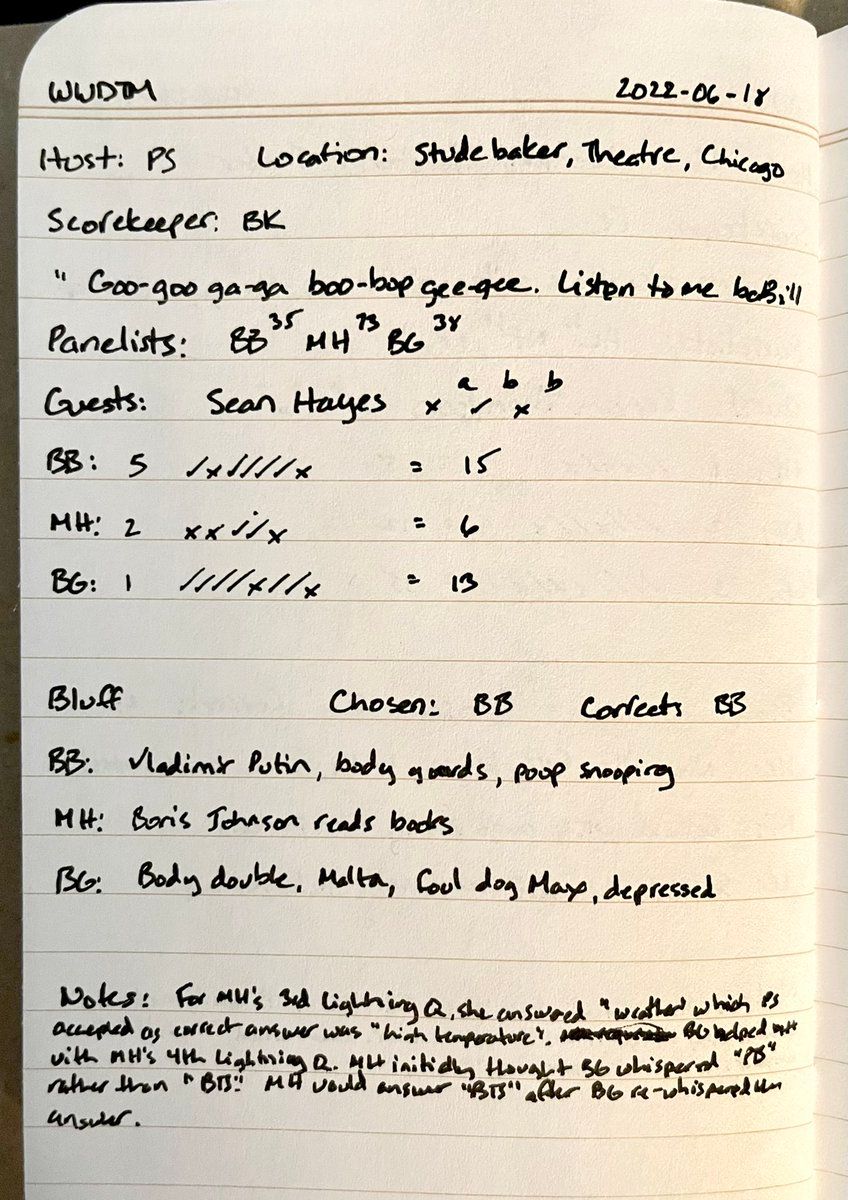 WWDTM 2022-06-18
Host: PS Location: Studebaker, Theatre, Chicago
Scorekeeper: BK
" Goo-goo ga-ga boo-bop gee-gee. Listen to me Bill
Panelists: BB 35 MH 73 BG 38
Guests: Sean Hayes x a ✓ b x b
BB: 5 ✓x✓✓✓✓x = 15
MH: 2 xx✓✓x = 6
BG: 1 ✓✓✓✓x✓✓x = 13
Bluff Chosen: BB Correct: BB
BB: Vladimir Putin, body guards, poop snooping
MH: Boris Johnson reads books
BG: Body double, Malta, foul dog Max, depressed
Notes: For MH's 3rd Lightning Q, she answered "weather" which PS
accepted as correct answer was "high temperature". BG helped MH
with MH's 4th Lightning Q. MH initially thought BG whispered "PB"
rather than "BTS". MH would answer "BTS" after BG re-whispered the
answer.